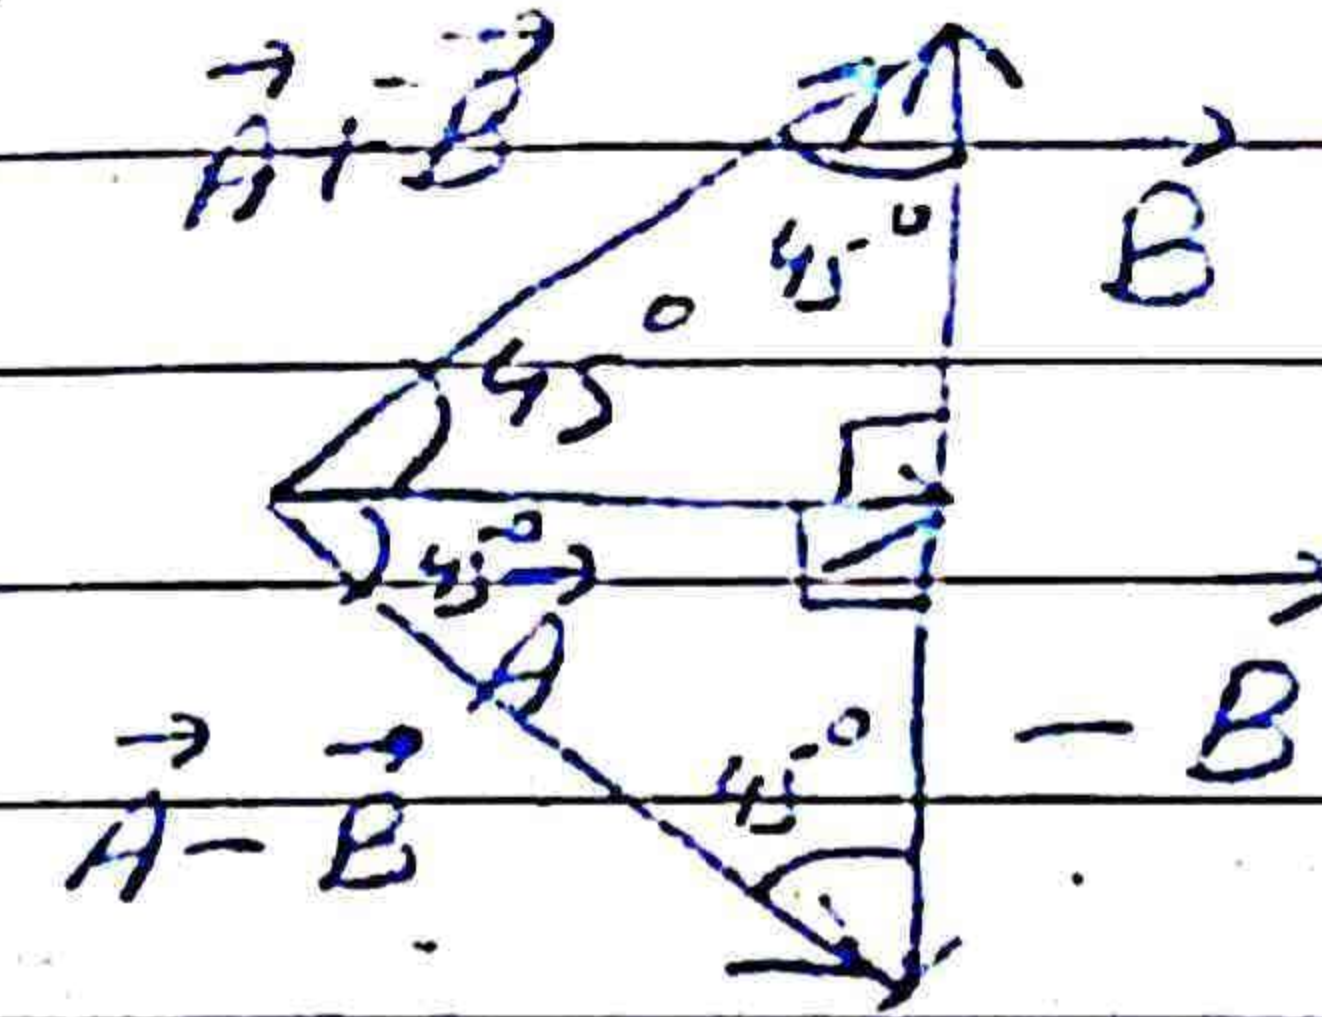 A⃗ + B⃗
B⃗
45°
45°
45°
A⃗
- B⃗
45°
A⃗ - B⃗